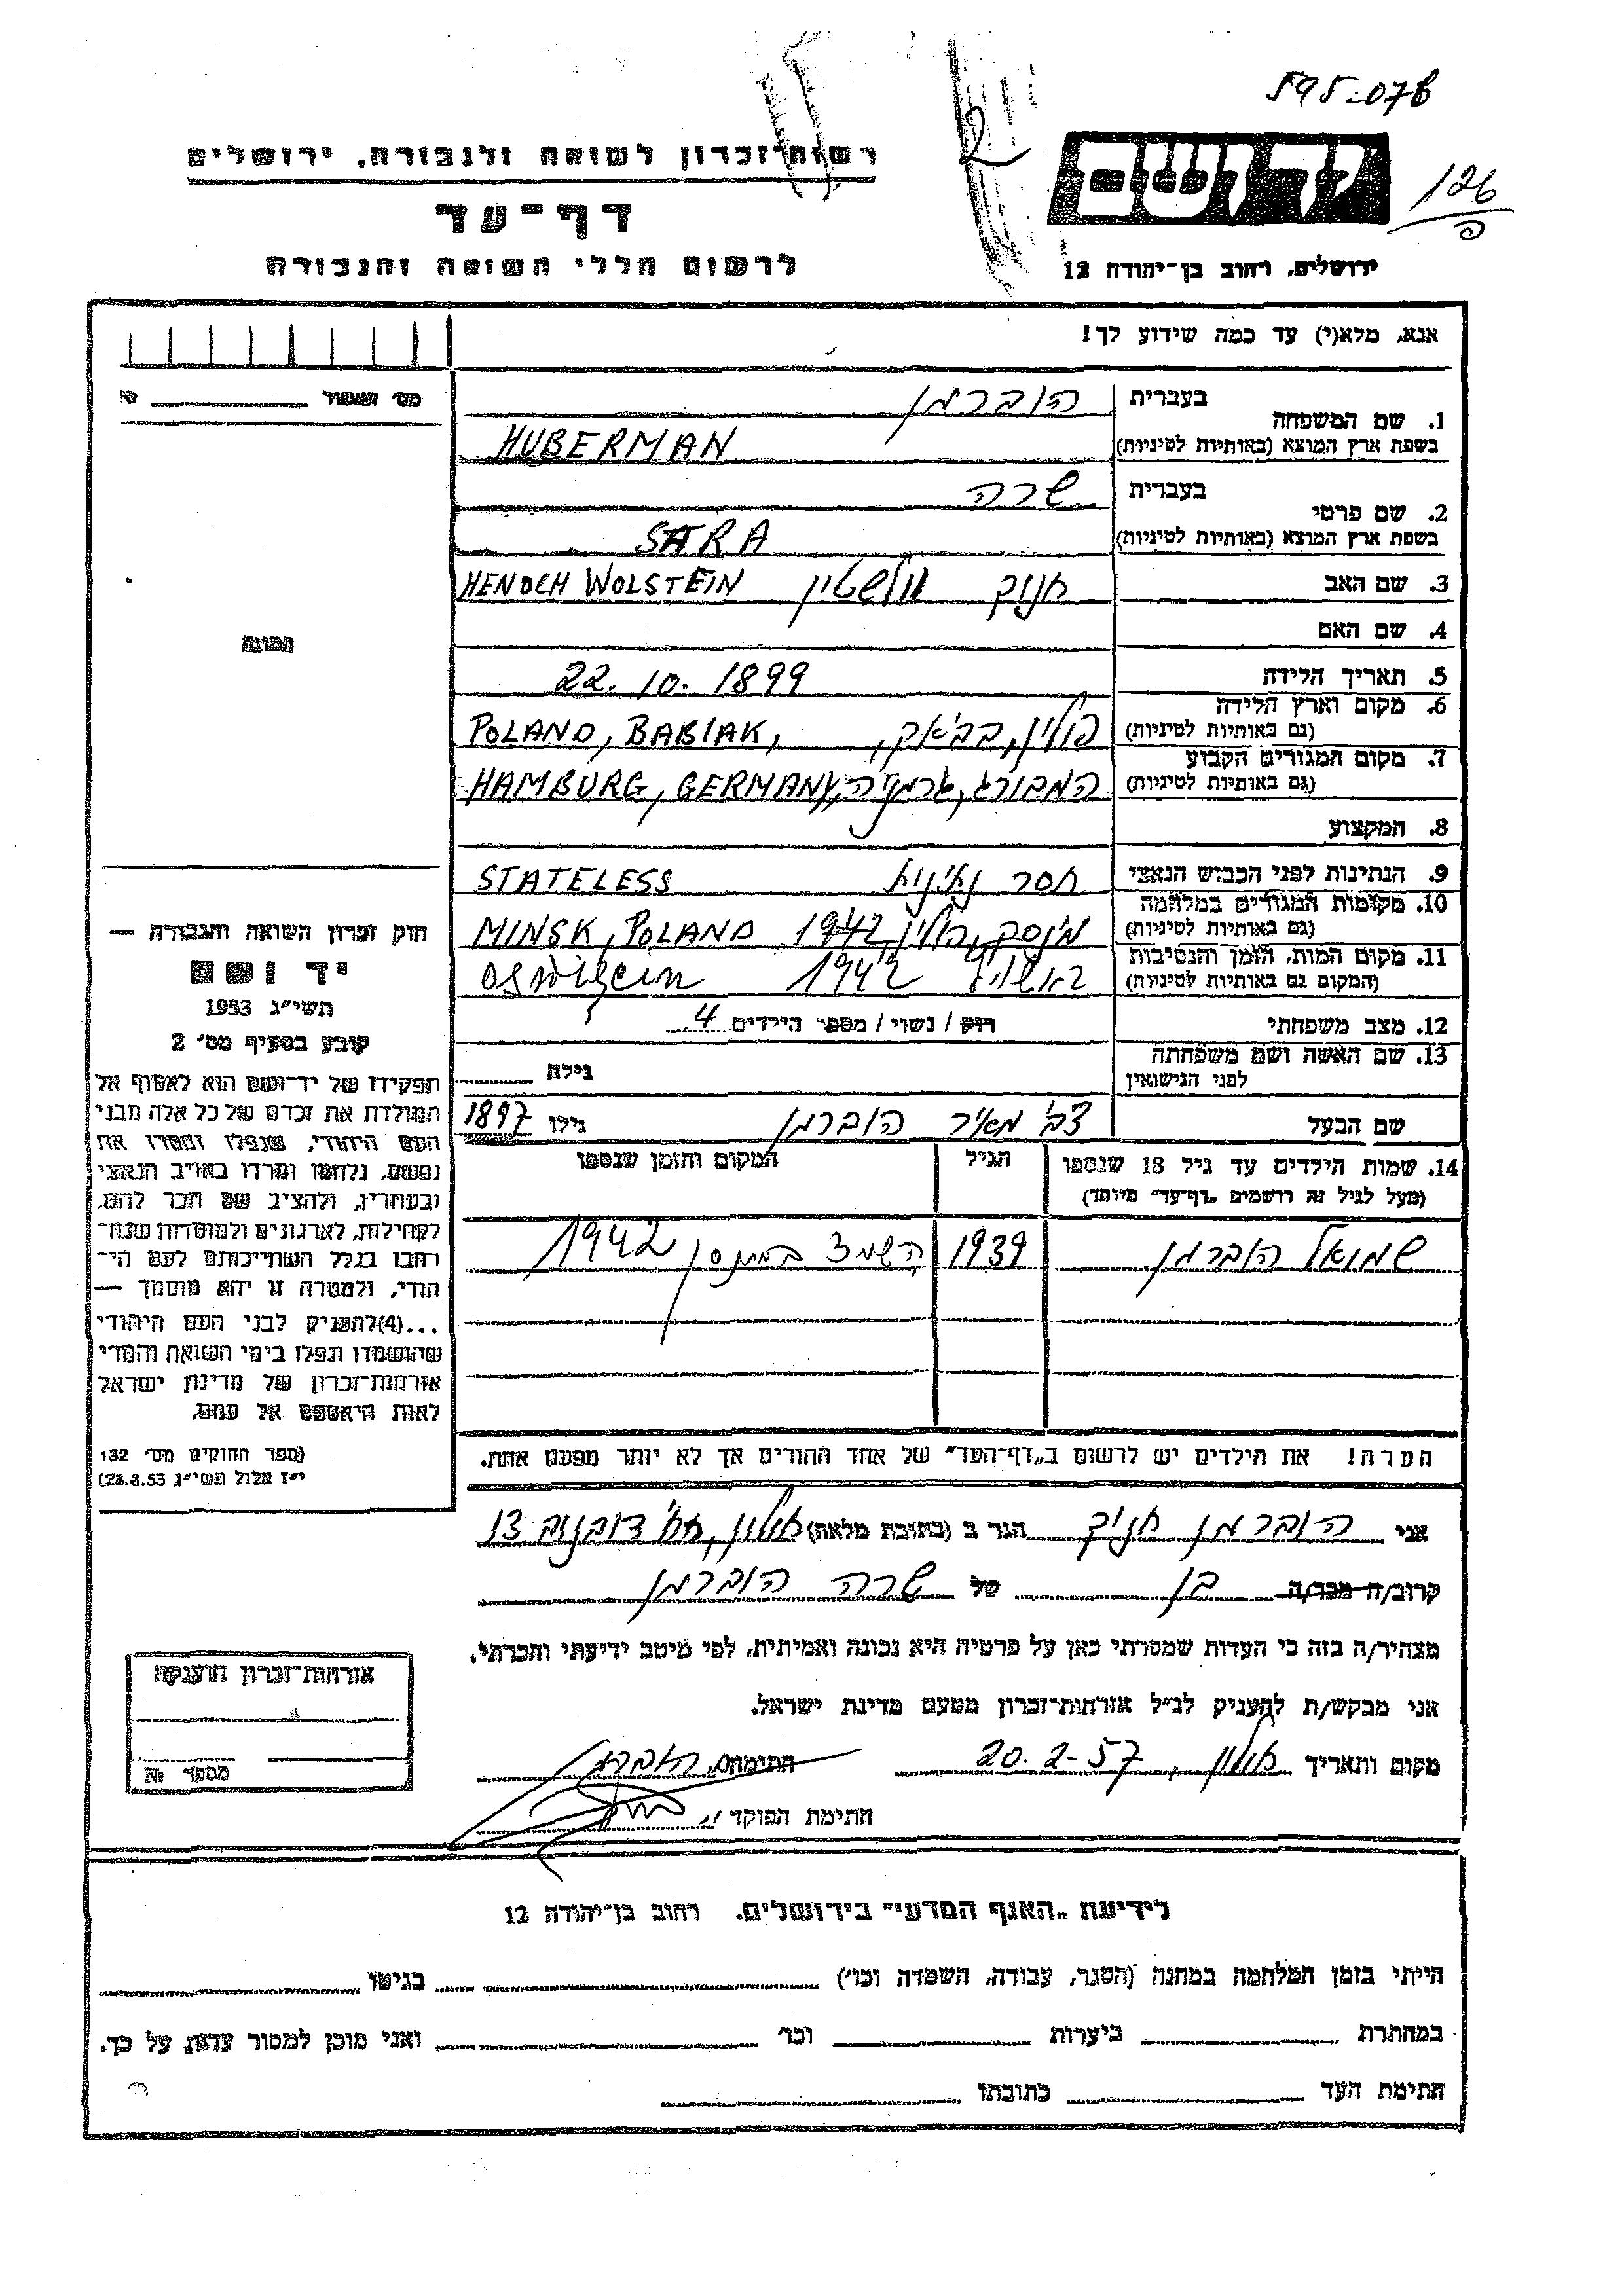 595-076
126
2
יד ושם
רשות־זכרון לשואה ולגבורה, ירושלים
דף־עד
לרשום חללי השואה והגבורה
ירושלים, רחוב בן־יהודה 12
אנא, מלא(י) עד כמה שידוע לך!
1. שם המשפחה בעברית הוברמן
בשפת ארץ המוצא (באותיות לטיניות) HUBERMAN
2. שם פרטי בעברית שרה
בשפת ארץ המוצא (באותיות לטיניות) SARA
3. שם האב חנוך וולשטיין HENOCH WOLSTEIN
4. שם האם
5. תאריך הלידה 22.10.1899
6. מקום וארץ הלידה (גם באותיות לטיניות) פולין, בביאק, POLAND, BABIAK,
7. מקום המגורים הקבוע (גם באותיות לטיניות) המבורג, גרמניה, HAMBURG, GERMANY
8. המקצוע
9. הנתינות לפני הכבוש הנאצי חסר נתינות STATELESS
10. מקומות המגורים במלחמה (גם באותיות לטיניות) מינסק, פולין 1942 MINSK, POLAND
11. מקום המות, הזמן והנסיבות (המקום גם באותיות לטיניות) באושויץ 1942
12. מצב משפחתי רוק / נשוי / מספר הילדים 4
13. שם האשה ושם משפחתה לפני הנישואין גילה
שם הבעל צבי מאיר הוברמן גילו 1897
14. שמות הילדים עד גיל 18 שנספו הגיל המקום והזמן שנספו
(מעל לגיל זה רושמים „דף־עד” מיוחד)
שמואל הוברמן 1939 הושמד במינסק 1942
הערה! את הילדים יש לרשום ב„דף־העד” של אחד ההורים אך לא יותר מפעם אחת.
אני הוברמן חנוך הגר ב (כתובת מלאה) חולון, רח' דובנוב 13
קרוב/ה מכר/ה בן של שרה הוברמן
מצהיר/ה בזה כי העדות שמסרתי כאן על פרטיה היא נכונה ואמיתית, לפי מיטב ידיעתי והכרתי.
אני מבקש/ת להעניק לנ״ל אזרחות־זכרון מטעם מדינת ישראל.
מקום ותאריך חולון, 20.2-57 החתימה הוברמן
חתימת הפוקד
מס׳ האשור
תמונה
חוק זכרון השואה והגבורה —
יד ושם
תשי״ג 1953
קובע בסעיף מס׳ 2
תפקידו של יד־ושם הוא לאסוף אל
המולדת את זכרם של כל אלה מבני
העם היהודי, שנפלו ומסרו את
נפשם, נלחמו ומרדו באויב הנאצי
ובעוזריו, ולהציב שם וזכר להם,
לקהילות, לארגונים ולמוסדות שנח־
רבו בגלל השתייכותם לעם הי־
הודי, ולמטרה זו יהא מוסמך —
...(4) להעניק לבני העם היהודי
שהושמדו ונפלו בימי השואה והמרי
אזרחות־זכרון של מדינת ישראל
לאות היאספם אל עמם.
(ספר החוקים מס׳ 132
י״ז אלול תשי״ג 28.8.53)
אזרחות־זכרון הוענקה
מספר №
לידיעת „האגף המדעי” בירושלים. רחוב בן־יהודה 12
הייתי בזמן המלחמה במחנה (הסגר, עבודה, השמדה וכו׳) בגיטו
במחתרת ביערות וכו׳ ואני מוכן למסור עדות על כך.
חתימת העד כתובתו